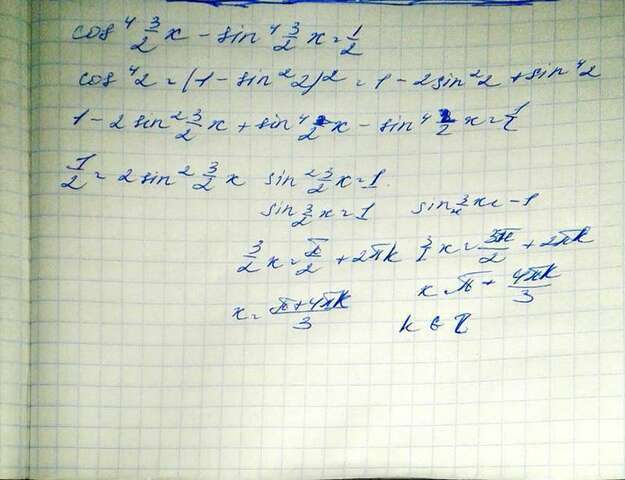 cos⁴ 3/2 x - sin⁴ 3/2 x = 1/2
cos⁴2 = (1 - sin²2)² = 1 - 2sin²2 + sin⁴2
1 - 2 sin² 3/2 x + sin⁴ 3/2 x - sin⁴ 3/2 x = 1/2
1/2 = 2 sin² 3/2 x sin² 3/2 x = 1
sin 3/2 x = 1 sin 3/2 x = -1
3/2 x = π/2 + 2πk 3/2 x = 3π/2 + 2πk
x = π + 4πk/3 x = π + 4πk/3
k ∈ Z